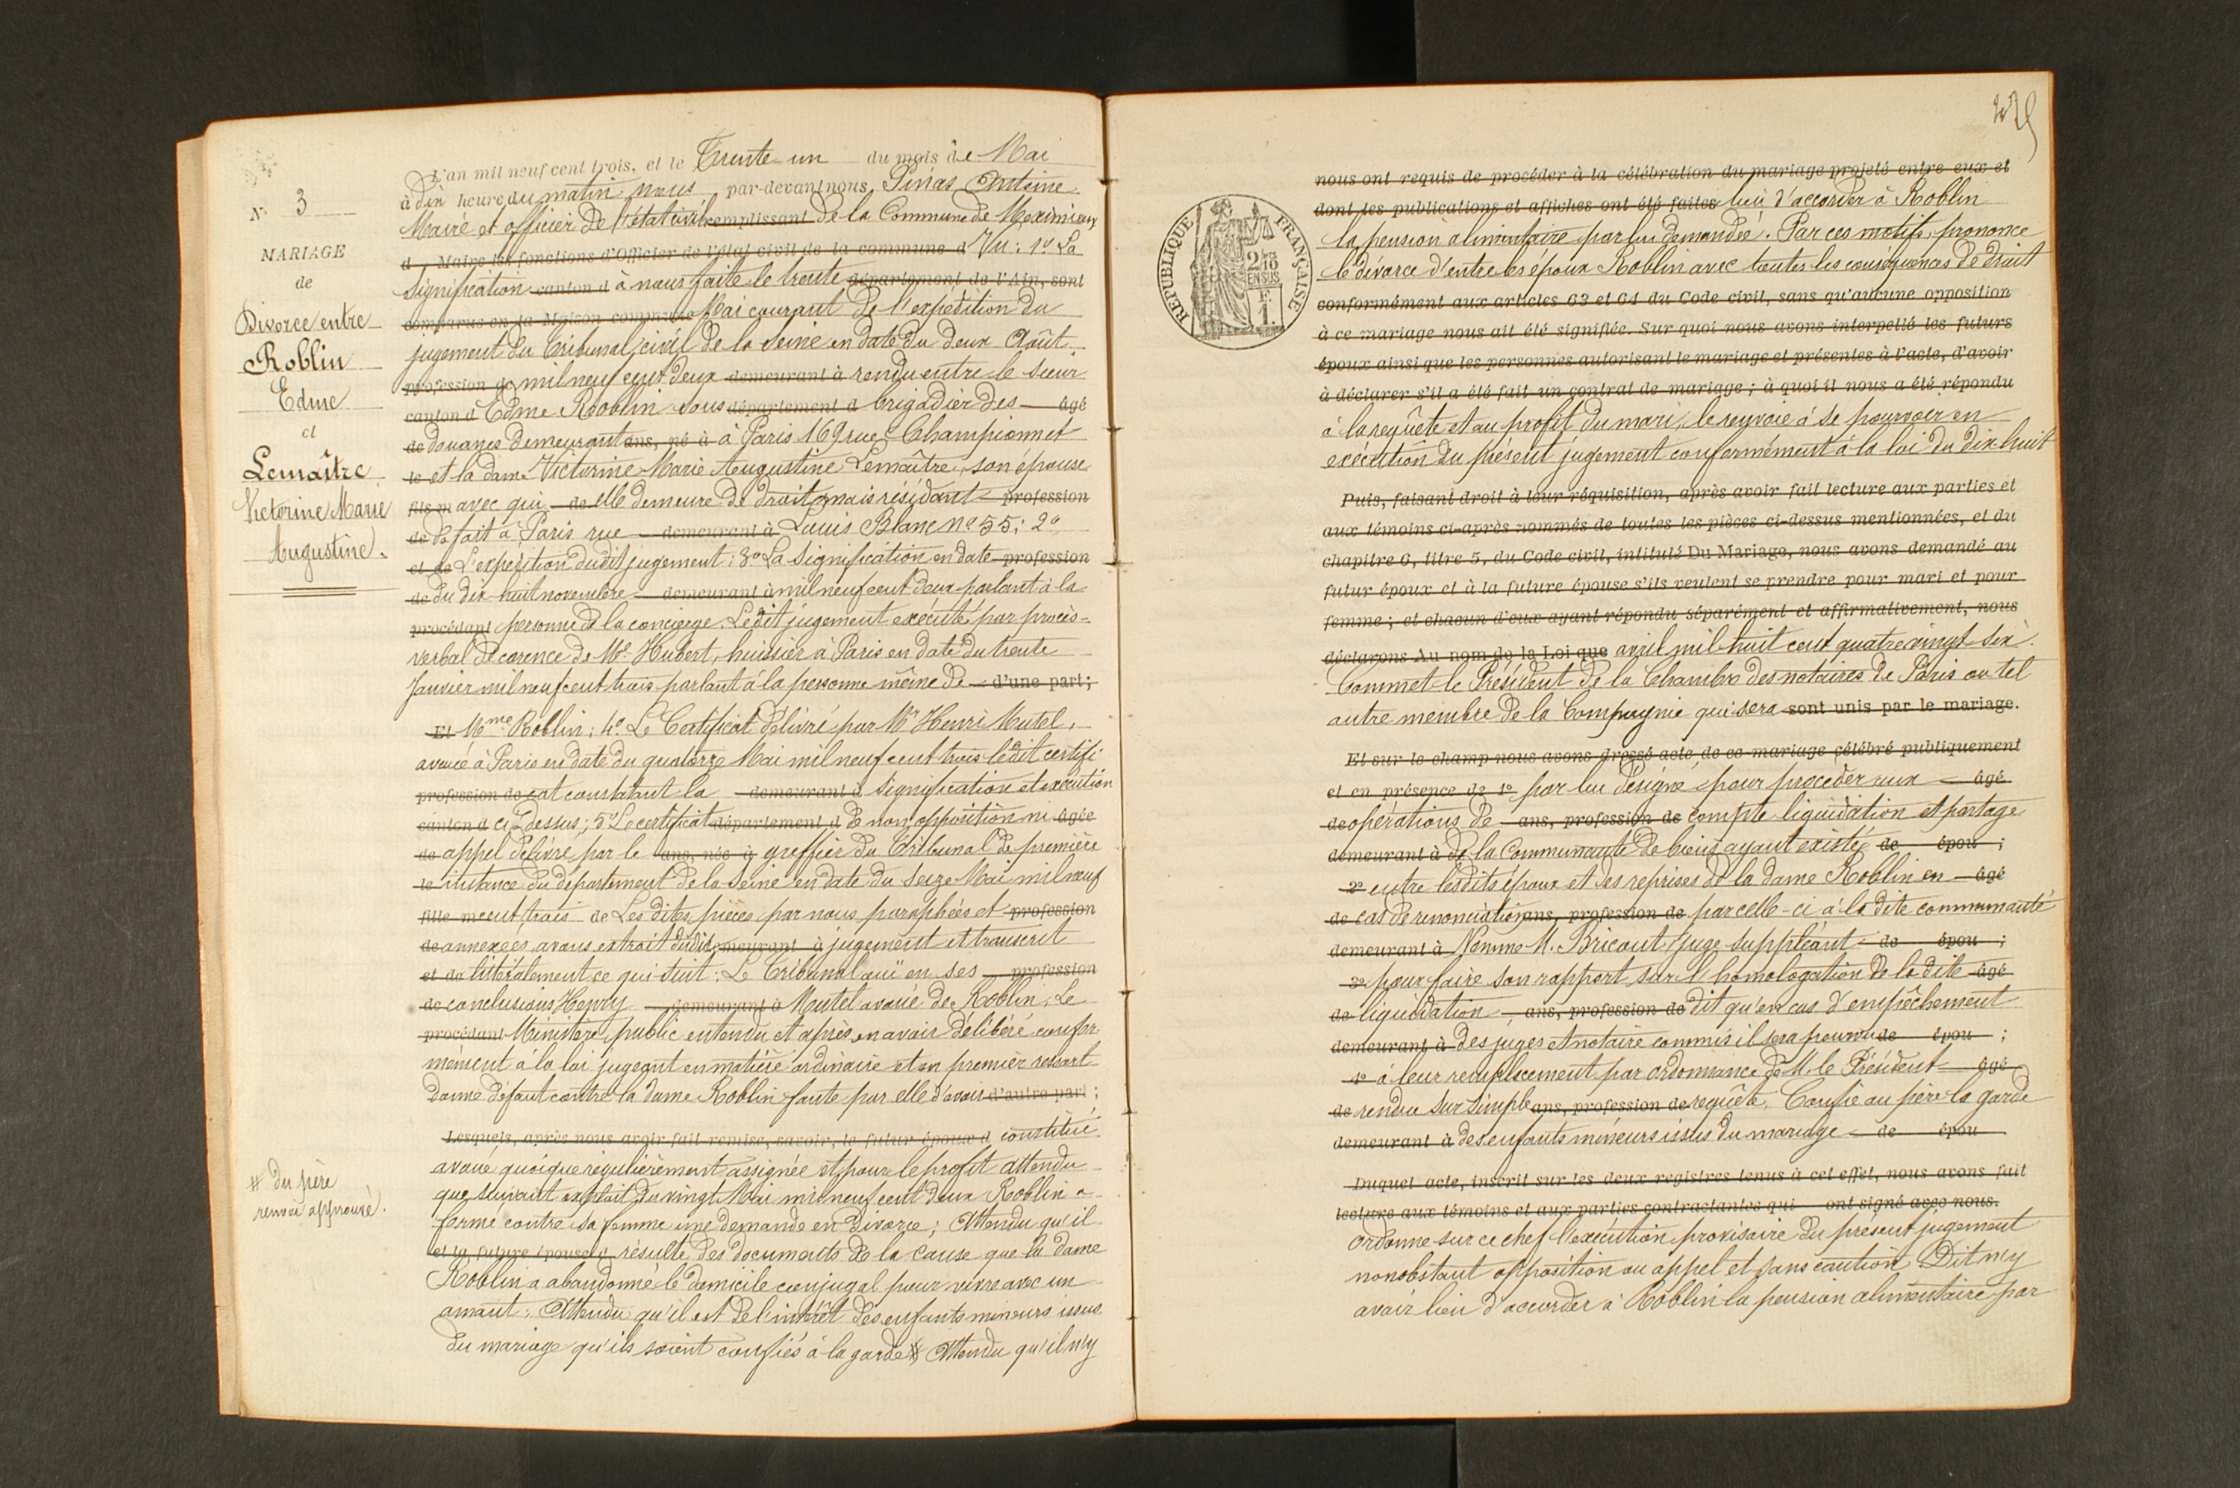 N° 3
MARIAGE
de
Divorce entre
Roblin
Edme
et
Lemaître
Victorine Marie
Augustine.
L'an mil neuf cent trois, et le Trente un du mois de Mai
à dix heure du matin nous par-devant nous Pinas Antoine
Maire et officier de l'état civil remplissant de la Commune de Meximieux
d , Maire les fonctions d'Officier de l'état civil de la commune d Vu : 1° La
signification canton d à nous faite le trente département de l'Ain, sont
comparus en la Maison commune Mai courant de l'expédition du
jugement du Tribunal civil de la Seine en date du deux Août
profession de mil neuf cent deux demeurant à rendu entre le sieur
canton d Edme Roblin sous département d brigadier des âgé
de douanes demeurant ans, né à à Paris 169 rue Championnet
le et la dame Victorine Marie Augustine Lemaître, son épouse
fils m avec qui de elle demeure de droit mais résidant profession
de de fait à Paris rue demeurant à Louis Blanc N° 55; 2°
et de L'expédition dudit jugement; 3° La signification en date profession
de du dix huit novembre demeurant à mil neuf cent deux parlant à la
procédant personne de la concierge. Ledit jugement exécuté par procès-
verbal de carence de Me Hubert, huissier à Paris en date du trente
Janvier mil neuf cent trois parlant à la personne même de d'une part;
Et Mme Roblin; 4° Le Certificat délivré par Mr Henri Mutel,
avoué à Paris en date du quatorze Mai mil neuf cent trois ledit certifi
profession de cat constatant la demeurant à signification et exécution
canton d ci-dessus; 5° Le certificat département d de non opposition ni âgée
de appel délivré par le ans, née à greffier du Tribunal de première
le instance du département de la Seine en date du Seize Mai mil neuf
fille m cent trois de Les dites pièces par nous paraphées et profession
de annexées, avons extrait dudit demeurant à jugement et transcrit
et de littéralement ce qui suit : Le Tribunal ouï en ses profession
de conclusions Henry demeurant à Mutel avoué de Roblin, Le
procédant Ministère public entendu et après en avoir délibéré confor
mément à la loi jugeant en matière ordinaire et en premier ressort
Donne défaut contre la dame Roblin faute par elle d'avoir d'autre part;
Lesquels, après nous avoir fait remise, savoir, le futur époux d constitué
avoué quoique régulièrement assignée et pour le profit attendu
que suivant exploit du vingt Mai mil neuf cent deux Roblin a
formé contre sa femme une demande en divorce; Attendu qu'il
et la future épouse d résulte des documents de la cause que la dame
Roblin a abandonné le domicile conjugal pour vivre avec un
amant; Attendu qu'il est de l'intérêt des enfants mineurs issus
du mariage qu'ils soient confiés à la garde # Attendu qu'il n'y
# du père
renvoi approuvé.
REPUBLIQUE FRANÇAISE
nous ont requis de procéder à la célébration du mariage projeté entre eux et
dont les publications et affiches ont été faites lieu d'accorder à Roblin
la pension alimentaire par lui demandée. Par ces motifs, prononce
le divorce d'entre les époux Roblin avec toutes les conséquences de droit
conformément aux articles 63 et 64 du Code civil, sans qu'aucune opposition
à ce mariage nous ait été signifiée. Sur quoi nous avons interpellé les futurs
époux ainsi que les personnes autorisant le mariage et présentes à l'acte, d'avoir
à déclarer s'il a été fait un contrat de mariage; à quoi il nous a été répondu
à la requête et au profit du mari, le renvoie à se pourvoir en
exécution du présent jugement conformément à la loi du dix huit
Puis, faisant droit à leur réquisition, après avoir fait lecture aux parties et
aux témoins ci-après nommés de toutes les pièces ci-dessus mentionnées, et du
chapitre 6, titre 5, du Code civil, intitulé Du Mariage, nous avons demandé au
futur époux et à la future épouse s'ils veulent se prendre pour mari et pour
femme; et chacun d'eux ayant répondu séparément et affirmativement, nous
déclarons Au nom de la Loi que avril mil huit cent quatre vingt six.
Commet le Président de la Chambre des notaires de Paris ou tel
autre membre de la Compagnie qui sera sont unis par le mariage.
Et sur le champ nous avons dressé acte de ce mariage célébré publiquement
et en présence de 1° par lui désigné pour procéder aux âgé
de opérations de ans, profession de compte liquidation et partage
demeurant à de la Communauté de biens ayant existé de épou ;
2° entre lesdits époux et des reprises de la dame Roblin en âgé
de cas de renonciation ans, profession de par celle-ci à la dite communauté
demeurant à Nomme M. Bricout juge suppléant de épou ;
3° pour faire son rapport sur l'homologation de la dite âgé
de liquidation ans, profession de dit qu'en cas d'empêchement
demeurant à des juges et notaire commis il sera pourvu de épou ;
4° à leur remplacement par ordonnance de M. le Président âgé
de rendue sur simple ans, profession de requête. Confie au père la garde
demeurant à des enfants mineurs issus du mariage de épou
Duquel acte, inscrit sur les deux registres tenus à cet effet, nous avons fait
lecture aux témoins et aux parties contractantes qui ont signé avec nous.
Ordonne sur ce chef l'exécution provisoire du présent jugement
nonobstant opposition ou appel et sans caution Dit n'y
avoir lieu d'accorder à Roblin la pension alimentaire par